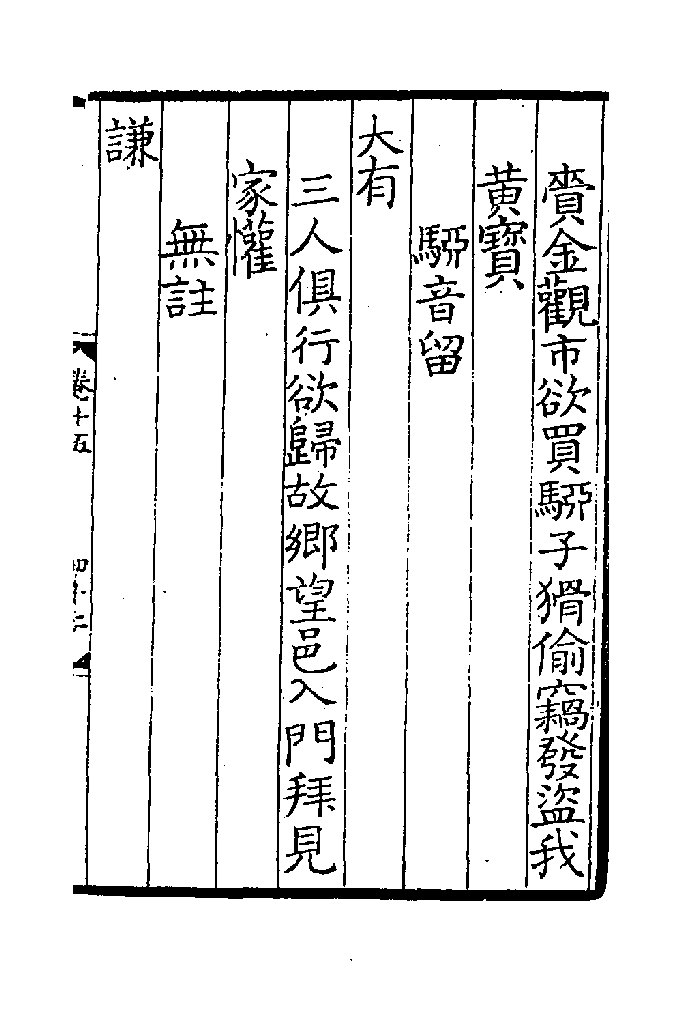 賫金觀市欲買騮子猾偷竊發盜我
黄寳
騮音留
大有
三人俱行欲歸故鄉望邑入門拜見
家懽
無註
謙
卷十五